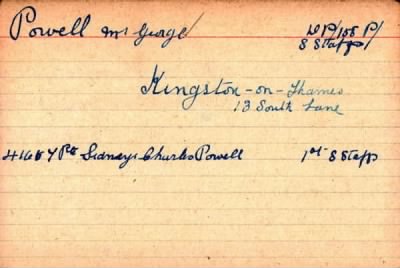 Powell Mr George WP/158 P/
S Staffs
Kingston-on-Thames
13 South Lane
41687 Pte Sidney Charles Powell 1st S Staffs